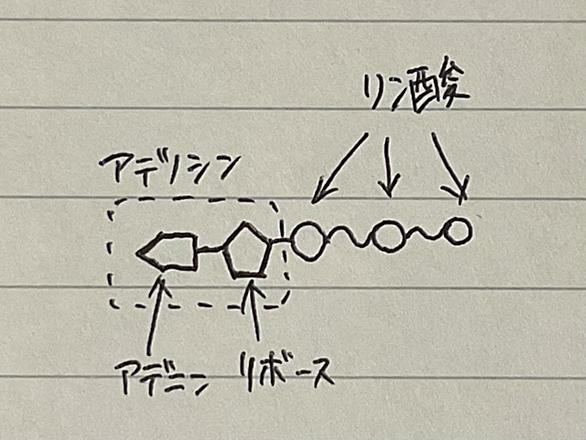 リン酸
アデノシン
アデニン リボース